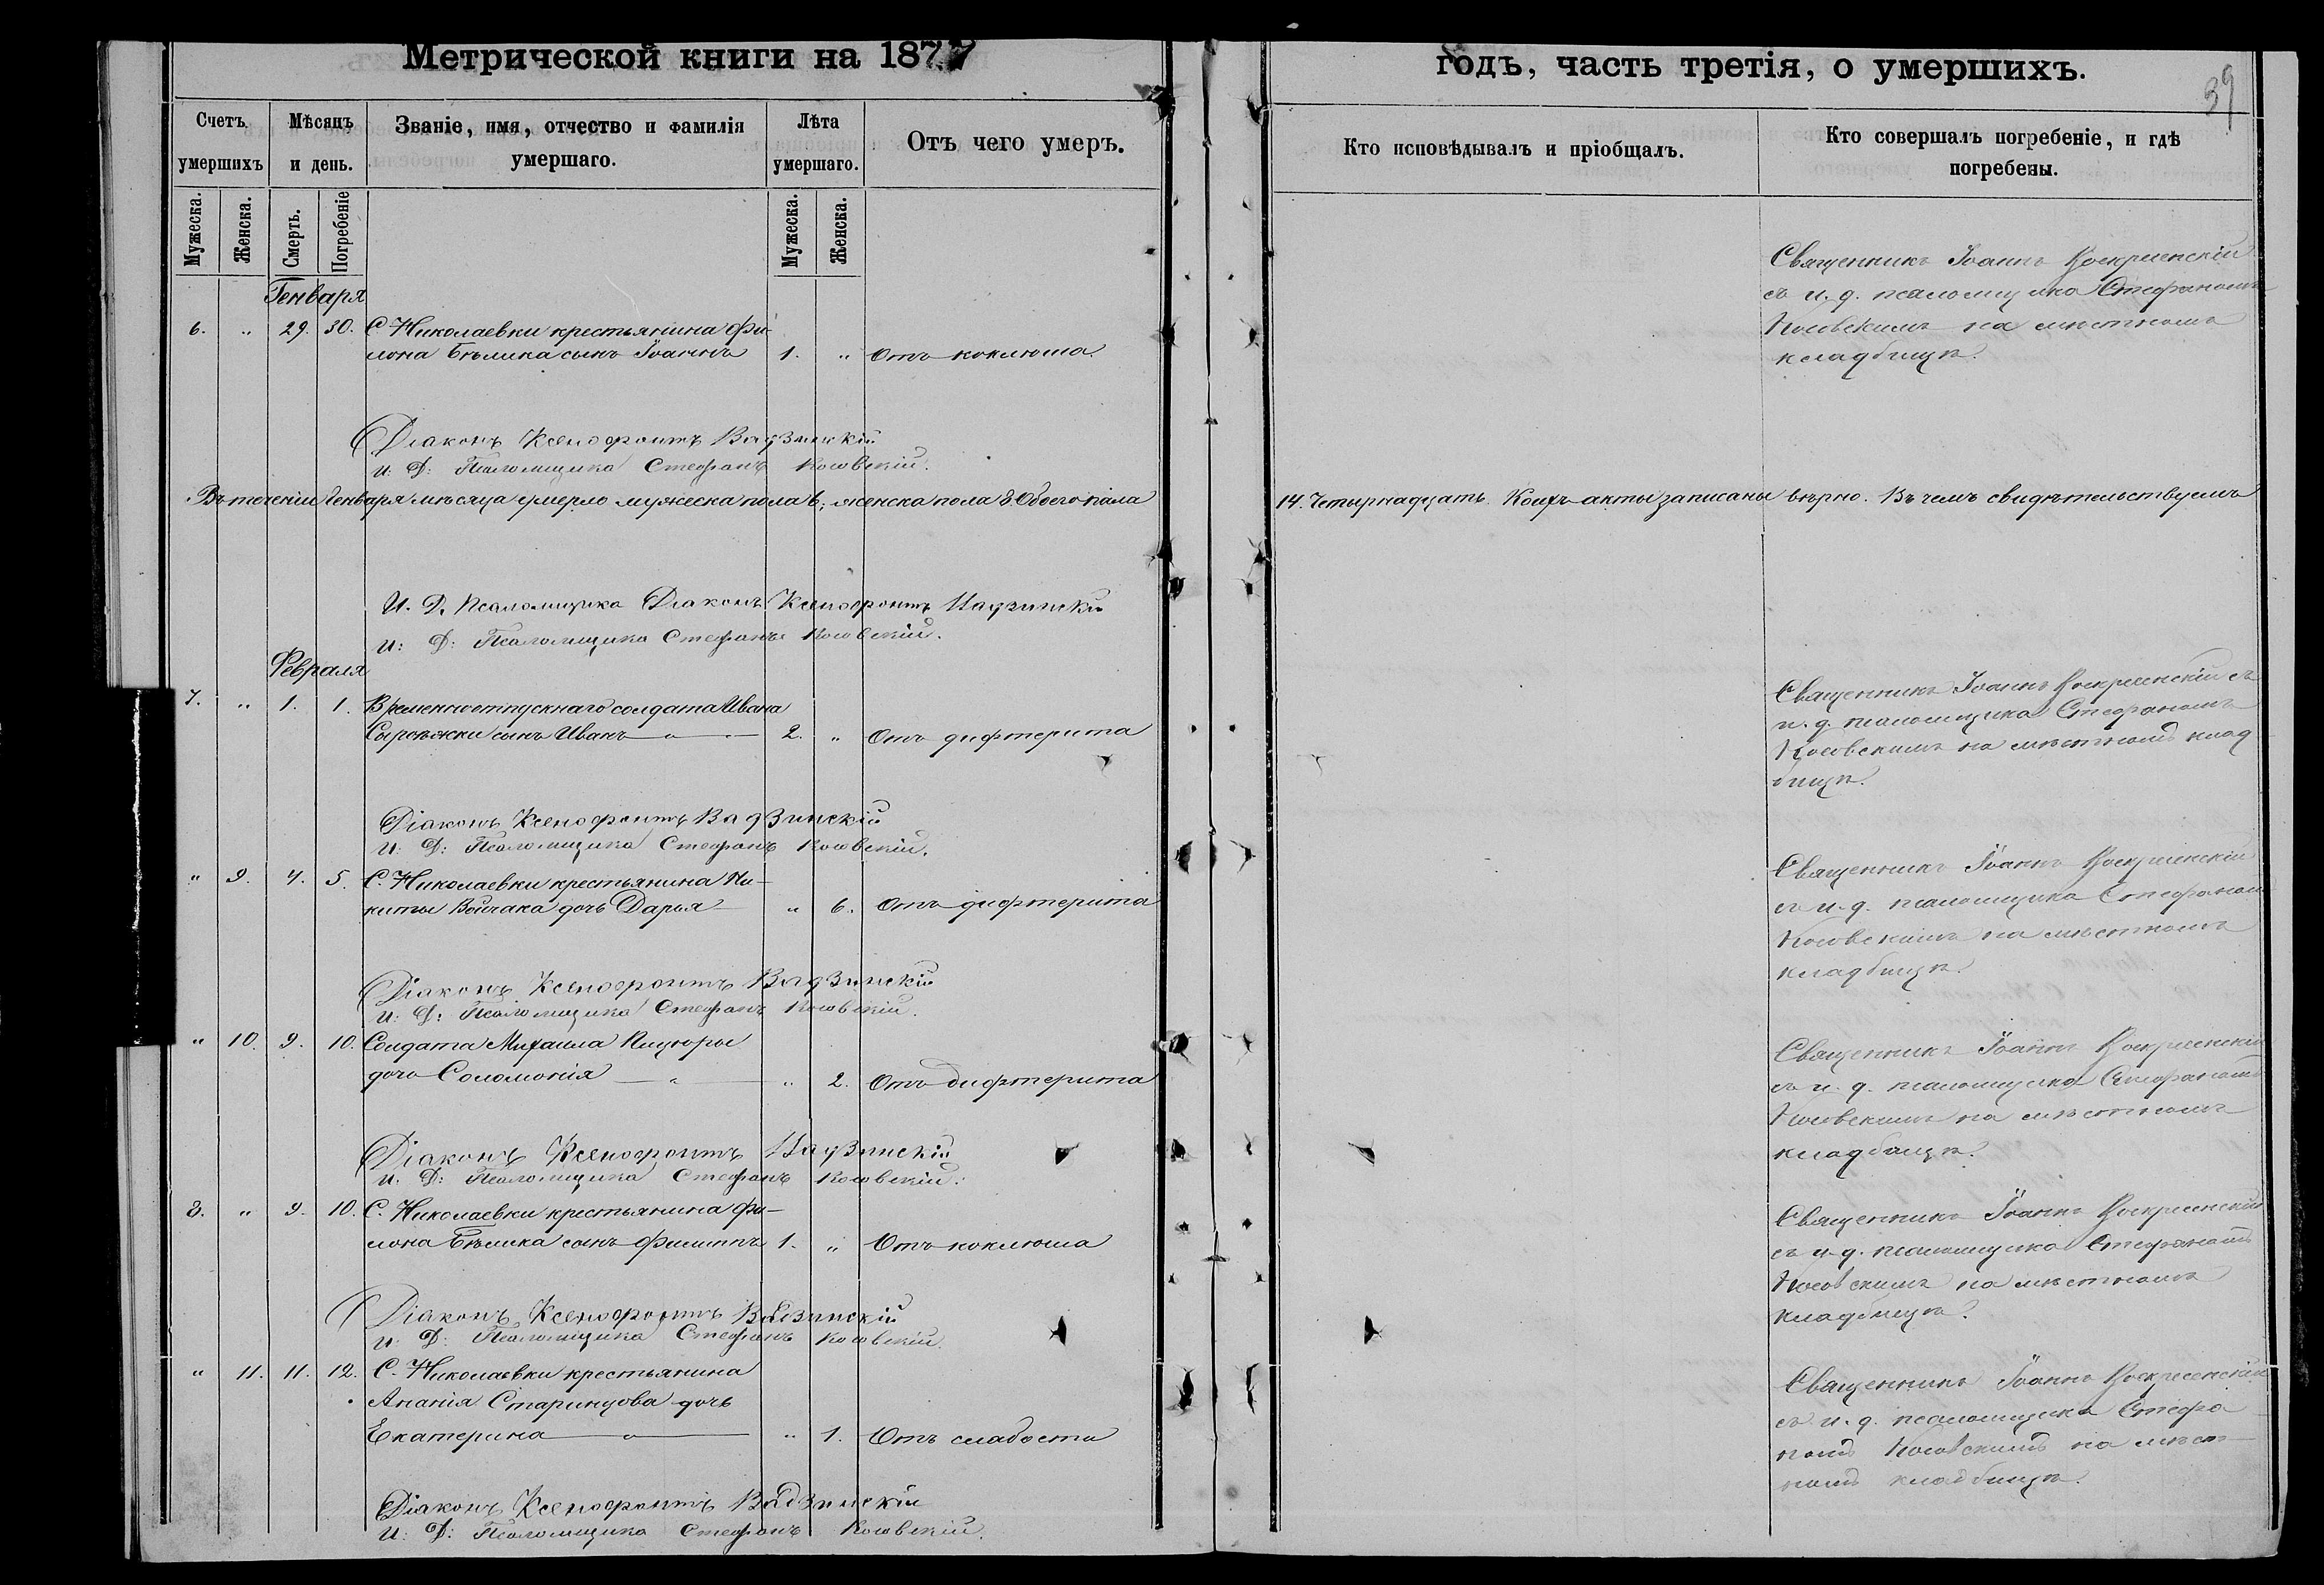 Метрической книги на 1877
годъ, часть третія, о умершихъ.
39
Счетъ умершихъ
Мѣсяцъ и день.
Званіе, имя, отчество и фамилія умершаго.
Лѣта умершаго.
Отъ чего умеръ.
Кто исповѣдывалъ и пріобщалъ.
Кто совершалъ погребеніе, и гдѣ погребены.
Мужеска.
Женска.
Смерть.
Погребеніе
Мужеска.
Женска.
Генваря
6. " 29. 30. С. Николаевки крестьянина Фи-
лона Бѣлика сынъ Іоаннъ 1. " Отъ коклюша
Священникъ Іоаннъ Воскресенскій
съ и. д. псаломщика Стефаномъ
Косовскимъ на мѣстномъ
кладбищѣ.
Діаконъ Ксенофонтъ Вадзинскій
И: Д: Псаломщика Стефанъ Косовскій.
Въ теченіи Генваря мѣсяца умерло мужеска пола 6, женска пола 8. Обоего пола
14. Четырнадцать. Коихъ акты записаны вѣрно. Въ чемъ свидѣтельствуемъ
И. Д. Псаломщика Діаконъ Ксенофонтъ Вадзинскій
И: Д: Псаломщика Стефанъ Косовскій.
Февраля
7. " 1. 1. Временноотпускнаго солдата Ивана
сынъ Иванъ — " — 2. " Отъ дифтерита
Священникъ Іоаннъ Воскресенскій съ
и. д. псаломщика Стефаномъ
Косовскимъ на мѣстномъ клад
бищѣ.
Діаконъ Ксенофонтъ Вадзинскій
И: Д: Псаломщика Стефанъ Косовскій.
" 9. 4. 5. С. Николаевки крестьянина Ни-
киты дочь Дарья " 6. Отъ дифтерита
Священникъ Іоаннъ Воскресенскій
съ и. д. псаломщика Стефаномъ
Косовскимъ на мѣстномъ
кладбищѣ.
Діаконъ Ксенофонтъ Вадзинскій
И: Д: Псаломщика Стефанъ Косовскій.
" 10. 9. 10. Солдата Михаила
дочь Соломонія — " — " 2. Отъ дифтерита
Священникъ Іоаннъ Воскресенскій
съ и. д. псаломщика Стефаномъ
Косовскимъ на мѣстномъ
кладбищѣ.
Діаконъ Ксенофонтъ Вадзинскій
И: Д: Псаломщика Стефанъ Косовскій.
8. " 9. 10. С. Николаевки крестьянина Фи-
лона Бѣлика сынъ Филиппъ 1. " Отъ коклюша
Священникъ Іоаннъ Воскресенскій
съ и. д. псаломщика Стефаномъ
Косовскимъ на мѣстномъ
кладбищѣ.
Діаконъ Ксенофонтъ Вадзинскій
И: Д: Псаломщика Стефанъ Косовскій.
" 11. 11. 12. С. Николаевки крестьянина
Ананія Старинцова дочь
Екатерина — " — " 1. Отъ слабости
Священникъ Іоаннъ Воскресенскій
съ и. д. псаломщика Стефа
номъ Косовскимъ на мѣст-
номъ кладбищѣ.
Діаконъ Ксенофонтъ Вадзинскій
И: Д: Псаломщика Стефанъ Косовскій.